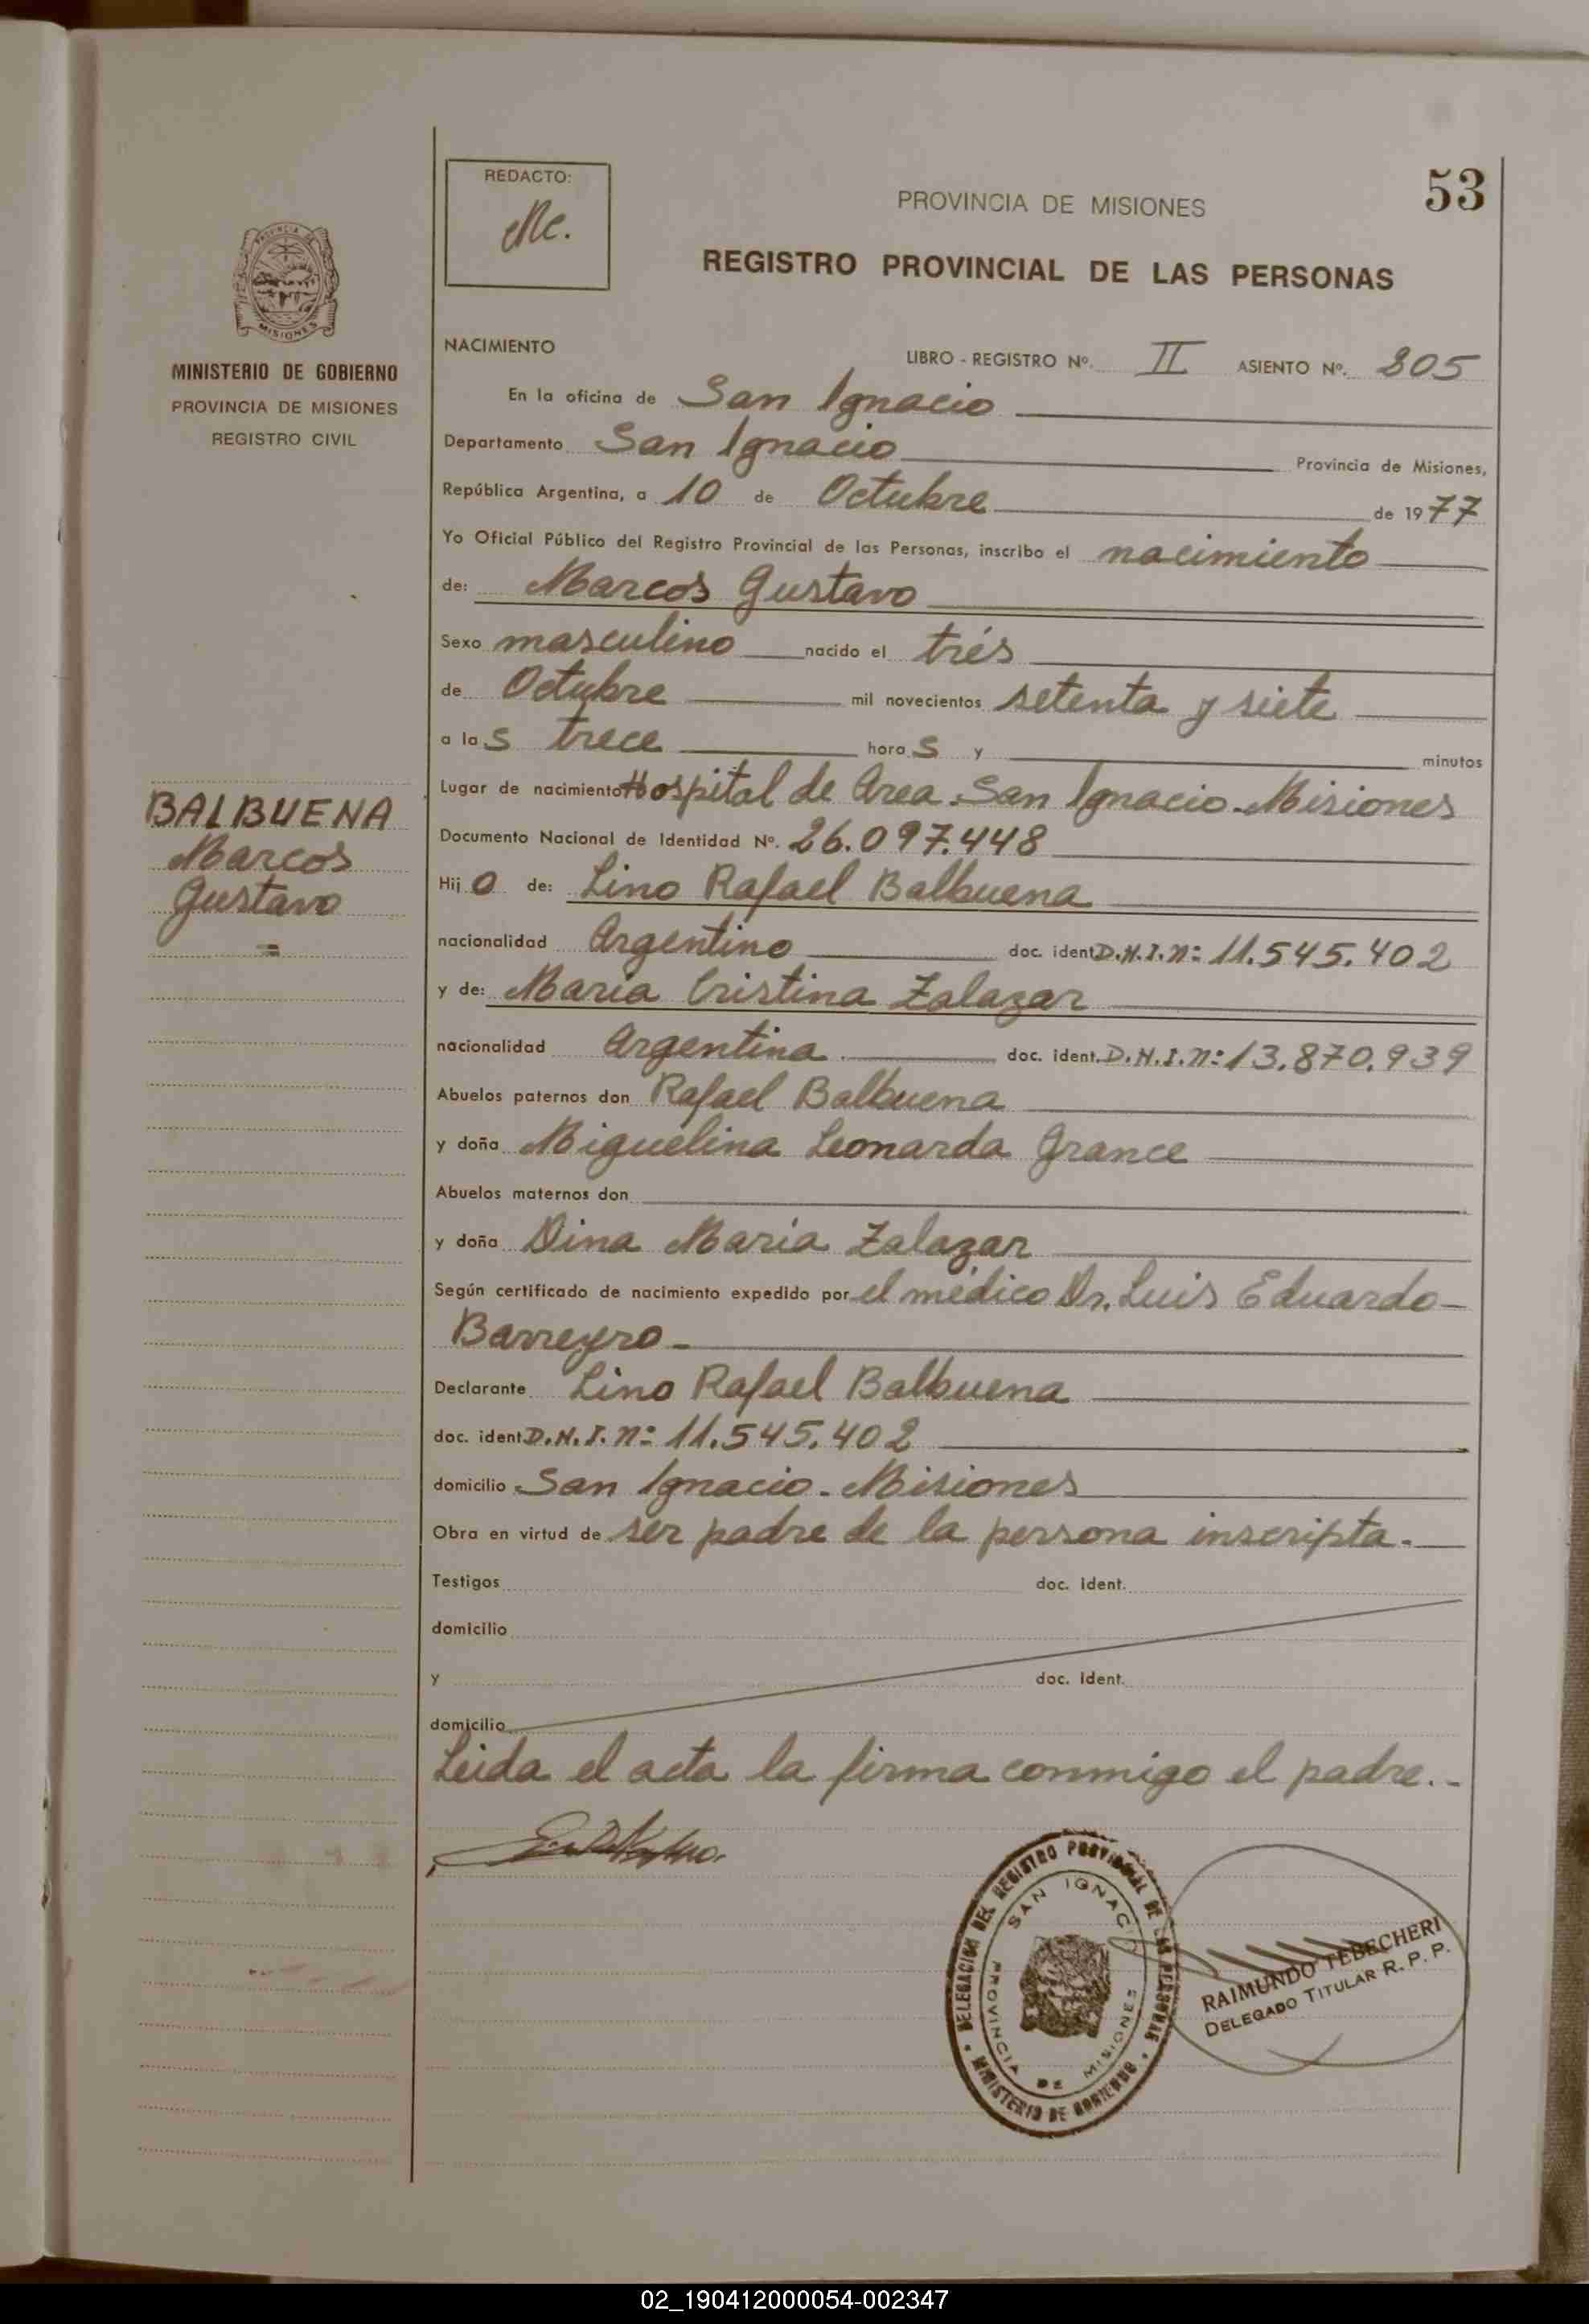 53
REDACTO:
Mc.
PROVINCIA DE MISIONES
REGISTRO PROVINCIAL DE LAS PERSONAS
PROVINCIA DE
MISIONES
MINISTERIO DE GOBIERNO
PROVINCIA DE MISIONES
REGISTRO CIVIL
BALBUENA
Marcos
Gustavo
NACIMIENTO LIBRO - REGISTRO Nº. II ASIENTO Nº. 805
En la oficina de San Ignacio
Departamento San Ignacio Provincia de Misiones,
República Argentina, a 10 de Octubre de 1977
Yo Oficial Público del Registro Provincial de las Personas, inscribo el nacimiento
de: Marcos Gustavo
Sexo masculino nacido el trés
de Octubre mil novecientos setenta y siete
a las trece horas y minutos
Lugar de nacimiento Hospital de Area San Ignacio - Misiones
Documento Nacional de Identidad Nº. 26.097.448
Hijo de: Lino Rafael Balbuena
nacionalidad Argentino doc. ident. D.N.I. nº 11.545.402
y de: Maria Cristina Zalazar
nacionalidad Argentina doc. ident. D.N.I. nº 13.870.939
Abuelos paternos don Rafael Balbuena
y doña Miguelina Leonarda Grance
Abuelos maternos don
y doña Dina Maria Zalazar
Según certificado de nacimiento expedido por el médico Dr. Luis Eduardo
Barreyro -
Declarante Lino Rafael Balbuena
doc. ident. D.N.I. nº 11.545.402
domicilio San Ignacio - Misiones
Obra en virtud de ser padre de la persona inscripta.
Testigos doc. ident.
domicilio
y doc. ident.
domicilio
Leida el acta la firma conmigo el padre.-
DELEGACION DEL REGISTRO PROVINCIAL DE LAS PERSONAS
MINISTERIO DE GOBIERNO
SAN IGNACIO
PROVINCIA DE MISIONES
RAIMUNDO TEBECHERI
DELEGADO TITULAR R. P. P.
02_190412000054-002347